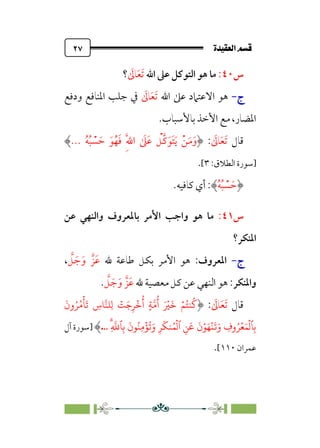 قسم العقيدة ٢٧
س٤٠: ما هو التوكل على الله تَعَالَىٰ؟
ج- هو الاعتماد على الله تَعَالَىٰ في جلب المنافع ودفع
المضار، مع الأخذ بالأسباب.
قال تَعَالَىٰ: ﴿وَمَن يَتَوَكَّلْ عَلَى ٱللَّهِ فَهُوَ حَسْبُهُۥٓ ...﴾
[سورة الطلاق: ٣].
﴿حَسْبُهُۥٓ﴾: أي كافيه.
س٤١: ما هو واجب الأمر بالمعروف والنهي عن
المنكر؟
ج- المعروف: هو الأمر بكل طاعة لله عَزَّ وَجَلَّ،
والمنكر: هو النهي عن كل معصية لله عَزَّ وَجَلَّ.
قال تَعَالَىٰ: ﴿كُنتُمْ خَيْرَ أُمَّةٍ أُخْرِجَتْ لِلنَّاسِ تَأْمُرُونَ
بِٱلْمَعْرُوفِ وَتَنْهَوْنَ عَنِ ٱلْمُنكَرِ وَتُؤْمِنُونَ بِٱللَّهِ ...﴾ [سورة آل
عمران ١١٠].